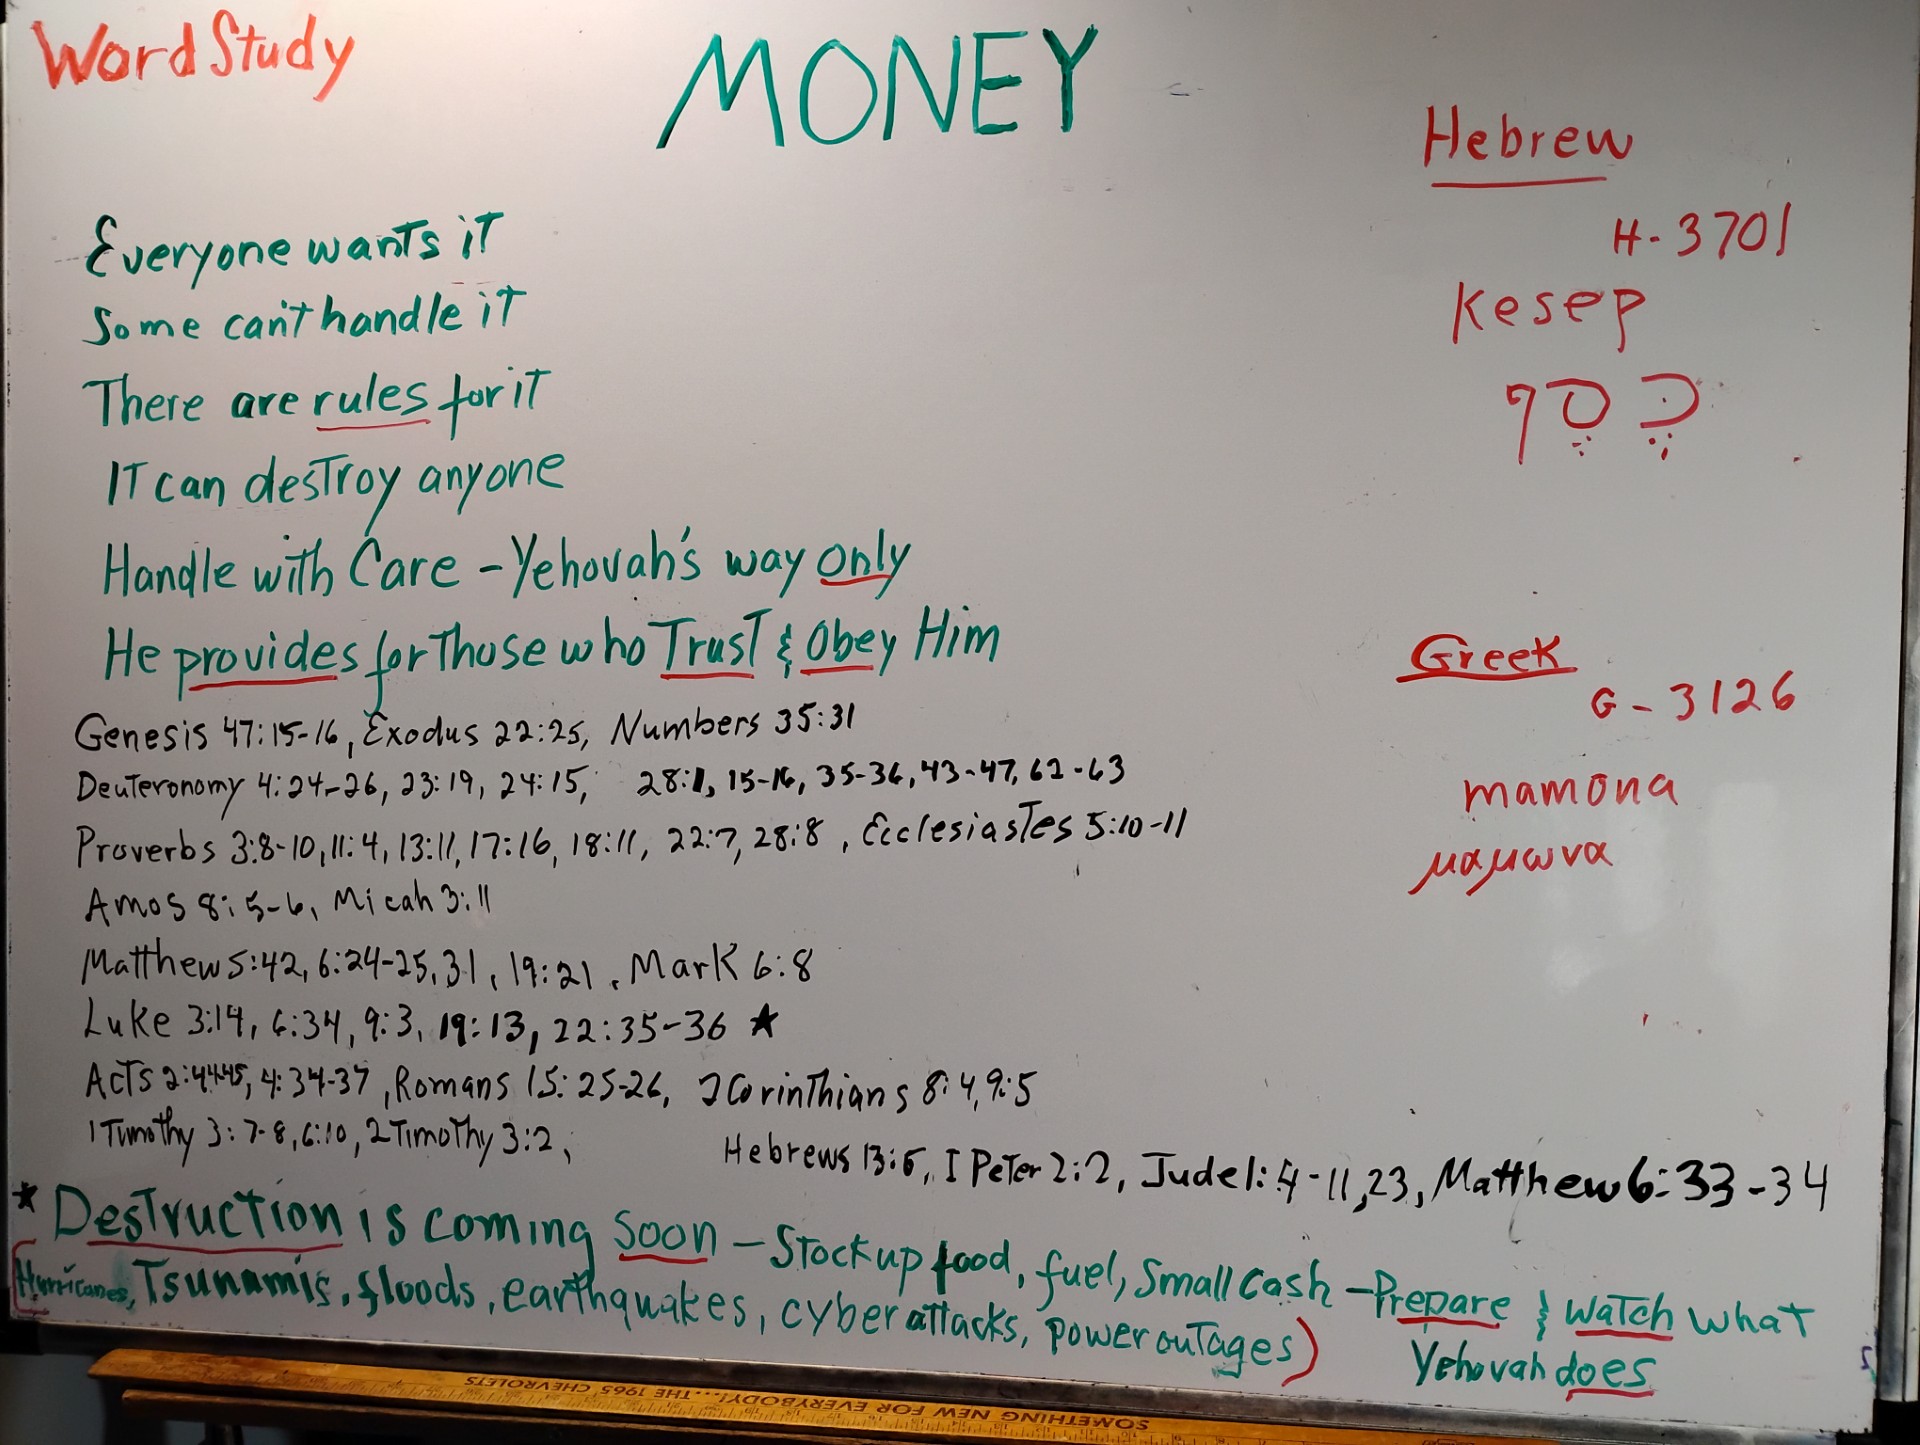 Word Study
MONEY
Everyone wants it
Some can't handle it
There are rules for it
IT can destroy anyone
Handle with Care - Yehovah's way only
He provides for Those who Trust & Obey Him
Genesis 47:15-16, Exodus 22:25, Numbers 35:31
Deuteronomy 4:24-26, 23:19, 24:15, 28:1, 15-16, 35-36, 43-47, 62-63
Proverbs 3:8-10, 11:4, 13:11, 17:16, 18:11, 22:7, 28:8, Ecclesiastes 5:10-11
Amos 8:5-6, Micah 3:11
Matthew 5:42, 6:24-25, 31, 19:21, Mark 6:8
Luke 3:14, 6:34, 9:3, 19:13, 22:35-36 ★
Acts 2:44-45, 4:34-37, Romans 15:25-26, 2 Corinthians 8:4, 9:5
1 Timothy 3:7-8, 6:10, 2 Timothy 3:2, Hebrews 13:5, I Peter 2:2, Jude 1:4-11, 23, Matthew 6:33-34
★ Destruction is coming soon - Stock up food, fuel, Small Cash - Prepare & watch what
Yehovah does
Hurricanes, Tsunamis, floods, earthquakes, cyber attacks, power outages)
Hebrew
H-3701
Kesep
כֶּסֶף
Greek
G-3126
mamona
μαμωνα
SOMETHING NEW FOR EVERYBODY!...THE 1965 CHEVROLETS